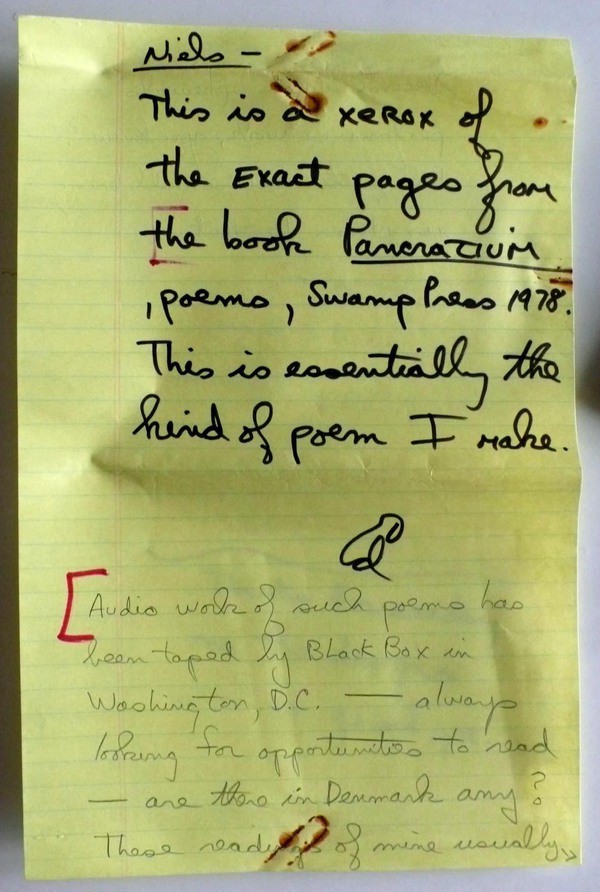 Niels —
This is a xerox of
the Exact pages from
the book Pancratium
, poems, Swamp Press 1978.
This is essentially the
kind of poem I make.
Audio work of such poems has
been taped by Black Box in
Washington, D.C. — always
looking for opportunities to read
— are there in Denmark any?
These readings of mine usually